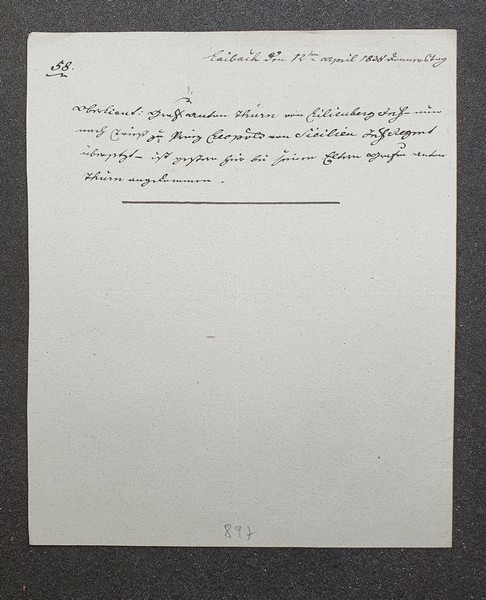 Laibach den 12ten April 1838 Donnerstag
58.
Oberlieut: Graf Anton Thurn von Lilienberg Inf= nun
nach Triest zu Prinz Leopold von Sicilien Inf: Regmt
übersetzt – ist gestern hier bei seinen Eltern Grafen Anton
Thurn angekommen.
897